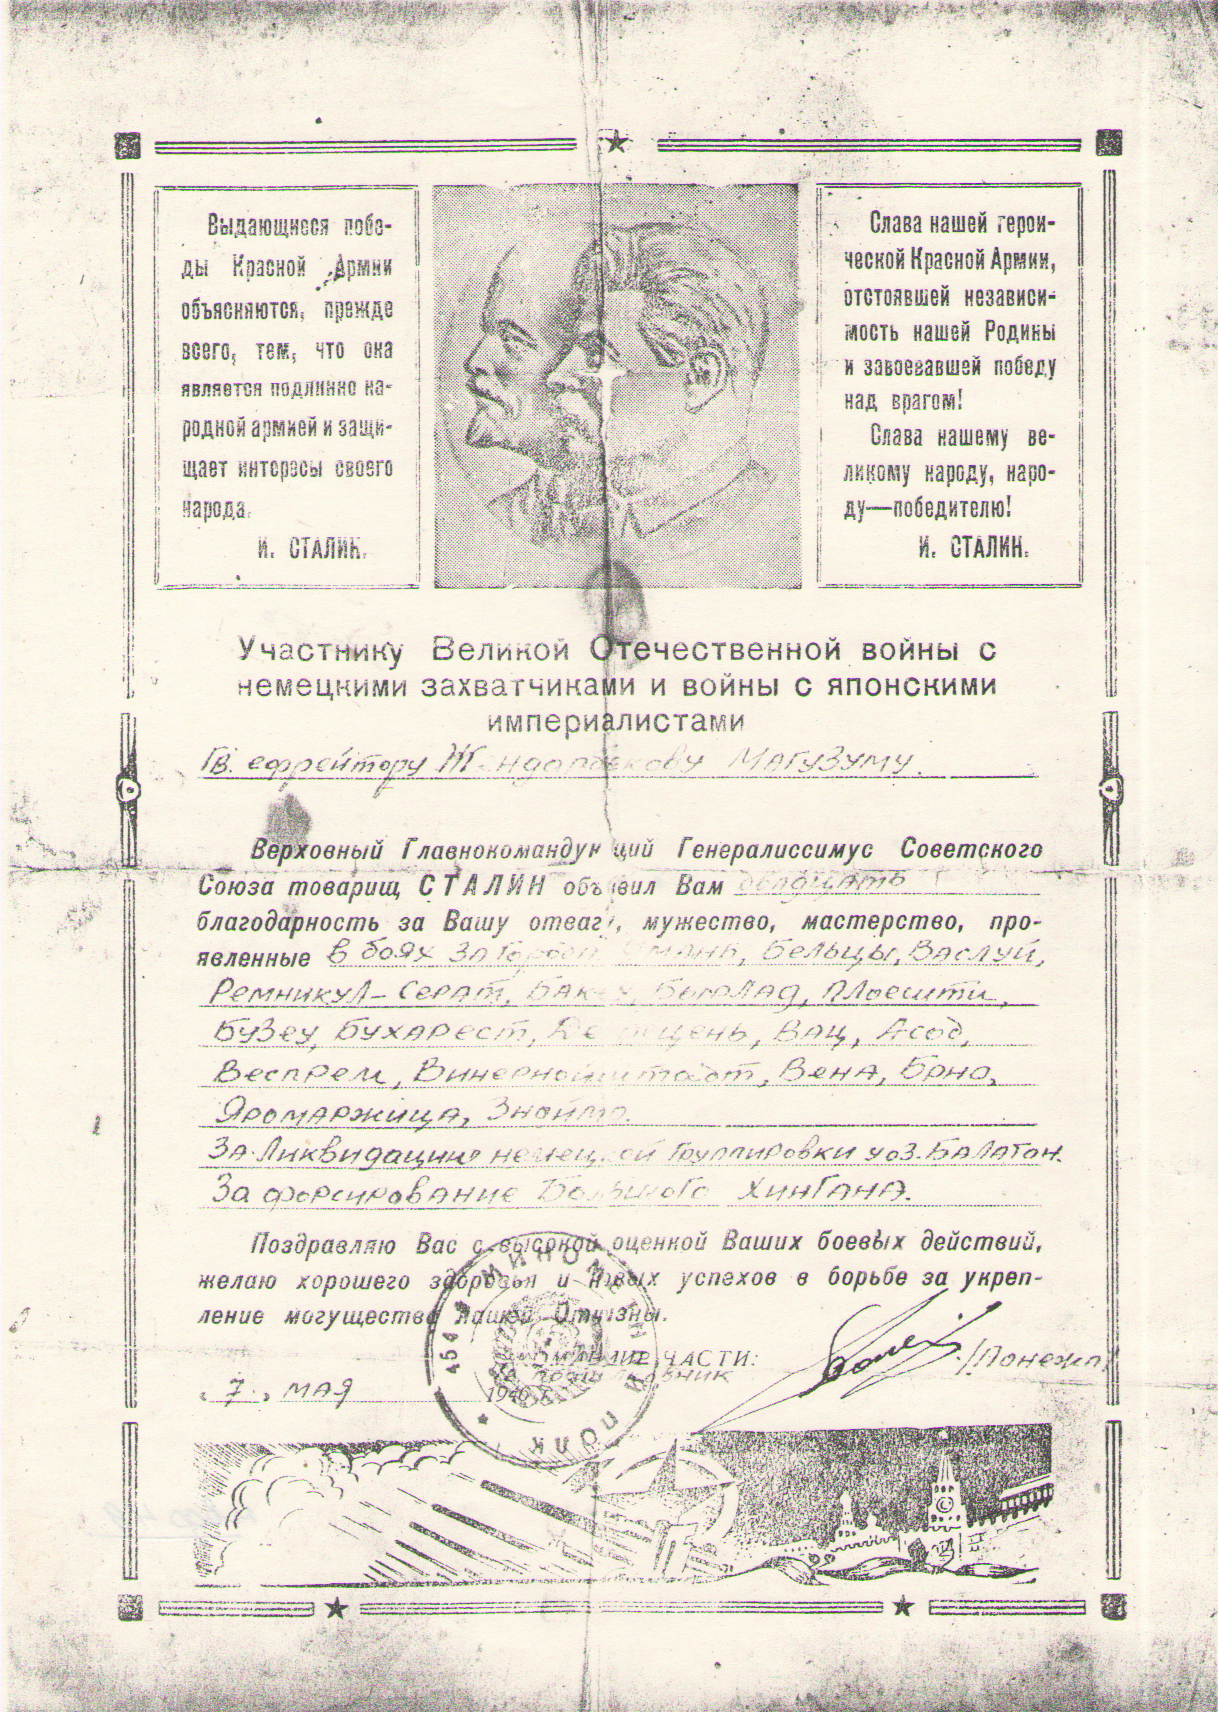 Выдающиеся побе-
ды Красной Армии
объясняются, прежде
всего, тем, что она
является подлинно на-
родной армией и защи-
щает интересы своего
народа.
И. СТАЛИН.
Слава нашей герои-
ческой Красной Армии,
отстоявшей независи-
мость нашей Родины
и завоевавшей победу
над врагом!
Слава нашему ве-
ликому народу, наро-
ду—победителю!
И. СТАЛИН.
Участнику Великой Отечественной войны с
немецкими захватчиками и войны с японскими
империалистами
Гв. ефрейтору Магузуму.
Верховный Главнокомандующий Генералиссимус Советского
Союза товарищ СТАЛИН объявил Вам
благодарность за Вашу отвагу, мужество, мастерство, про-
явленные в боях за город Умань, Бельцы, Васлуй,
Ремникул-Серат, Бакэу, Бырлад, Плоешти,
Бузеу, Бухарест, Дебрецень, Вац, Асод,
Веспрем, Винернойштадт, Вена, Брно,
Яромаржица, Знаймо.
За Ликвидацию немецкой Группировки у оз. Балатон.
За форсирование Большого Хингана.
Поздравляю Вас с высокой оценкой Ваших боевых действий,
желаю хорошего здоровья и новых успехов в борьбе за укреп-
ление могущества нашей Отчизны.
КОМАНДИР ЧАСТИ:
„7„ мая 1946 г.
454 МИНОМЕТНЫЙ ПОЛК